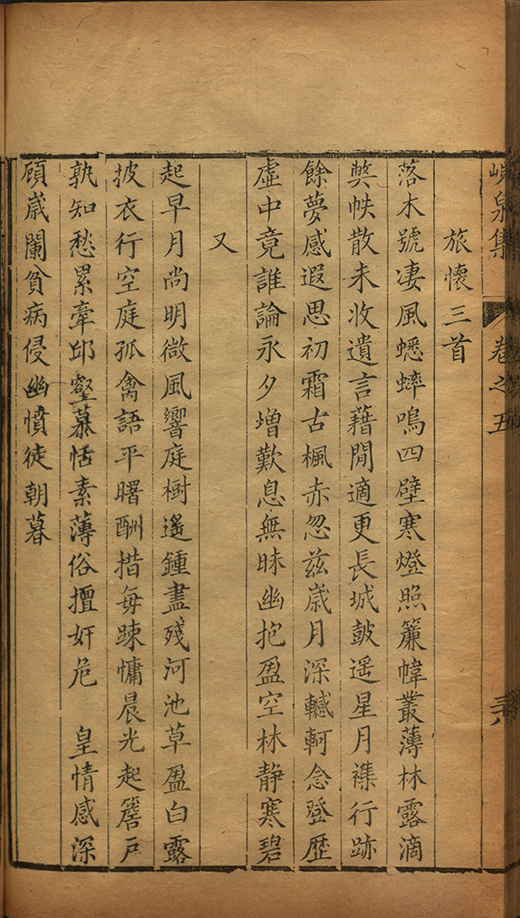 峴泉集 卷之五
旅懷三首
落木號凄風蟋蟀鳴四壁寒燈照簾幃叢薄林露滴
奬帙散未收遺言藉閒適更長城皷遥星月襍行跡
餘夢感遐思初霜古楓赤忽兹歲月深轗軻念登歷
虛中竟誰論永夕增歎息無昧幽抱盈空林静寒碧
又
起早月尚明微風響庭樹遙鍾盡殘河池草盈白露
披衣行空庭孤禽語平曙酬措每踈慵晨光起簷戶
孰知愁累牽邱壑慕恬素薄俗擅奸危 皇情感深
顧歲闌貧病侵幽憤徒朝暮